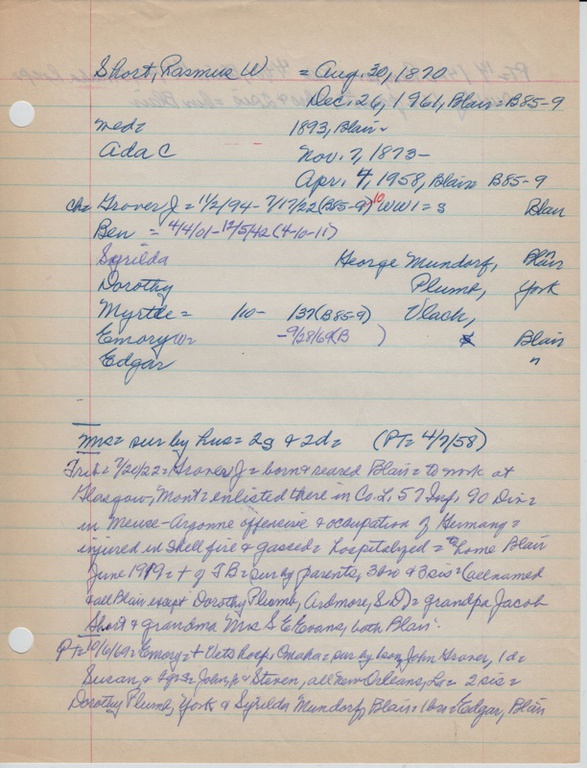 Short, Rasmus W = Aug. 30, 1870
Dec. 26, 1961, Blair = B85-9
med= 1893, Blair
Ada C Nov. 7, 1873-
Apr. 4, 1958, Blair B85-9
ch= Grover J = 11/2/94 - 7/17/22 (B85-9) 10 WW1 = S Blair
Ben = 4/4/01 - 12/5/42 (4-10-11)
Syrilda George Mundorf, Blair
Dorothy Plumb, York
Myrtle = 110- 137 (B85-9) Vlach,
Emory W= -9/28/69 (B ) Blair
Edgar "
Mrs= sur by hus= 2s & 2d= (PT= 4/7/58)
Trib= 7/20/22= Grover J= born & reared Blair= to work at
Glasgow, Mont= enlisted there in Co L, 57 Inf, 90 Div=
in Meuse-Argonne offensive & occupation of Germany=
injured in shell fire & gassed= hospitalized= home Blair
June 1919= + of TB= sur by parents, 3 bro & 3 sis= (all named
& all Blair except Dorothy Plumb, Ardmore, S.D)= grandpa Jacob
Short & grandma Mrs S E Evans, both Blair.
PT= 10/6/69= Emory= + Vets hosp, Omaha= sur by son John Grover, 1d=
Susan, & 2grs= John, jr & Steven, all New Orleans, La= 2 sis=
Dorothy Plumb, York & Syrilda Mundorf, Blair= 1 bro= Edgar, Blair